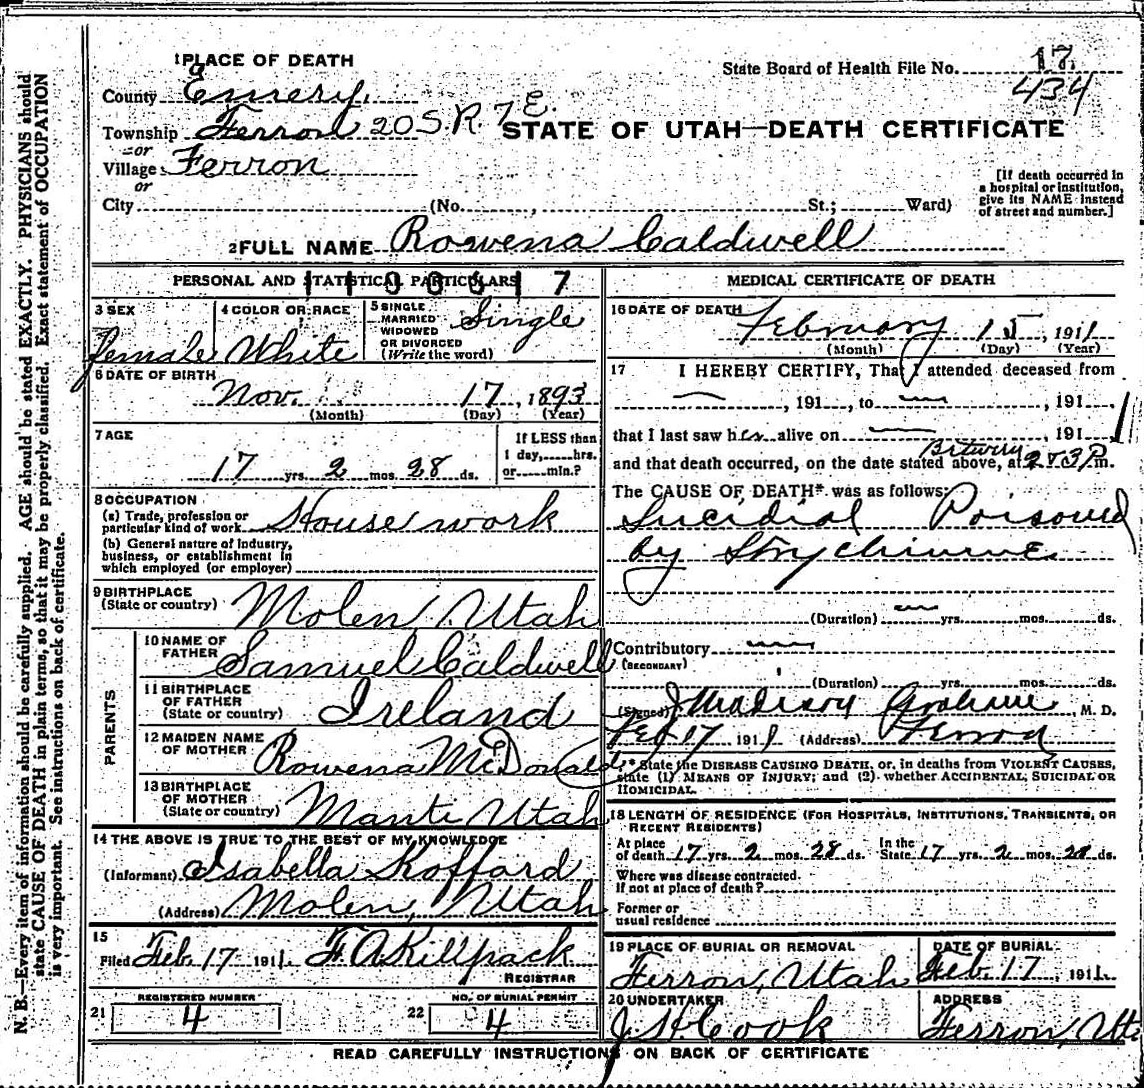 1 PLACE OF DEATH
State Board of Health File No. 17
434
County Emery
Township Ferron 20 S. R. 7 E.
STATE OF UTAH—DEATH CERTIFICATE
or
Village Ferron
or
City (No. , St.; Ward)
[If death occurred in a hospital or institution, give its NAME instead of street and number.]
2 FULL NAME Rowena Caldwell
PERSONAL AND STATISTICAL PARTICULARS
3 SEX female
4 COLOR OR RACE White
5 SINGLE MARRIED WIDOWED OR DIVORCED (Write the word) Single
6 DATE OF BIRTH
Nov. 17, 1893
(Month) (Day) (Year)
7 AGE
17 yrs. 2 mos. 28 ds.
If LESS than 1 day, hrs. or min.?
8 OCCUPATION
(a) Trade, profession or particular kind of work House work
(b) General nature of industry, business, or establishment in which employed (or employer)
9 BIRTHPLACE
(State or country) Molen, Utah
PARENTS
10 NAME OF FATHER Samuel Caldwell
11 BIRTHPLACE OF FATHER (State or country) Ireland
12 MAIDEN NAME OF MOTHER Rowena McDonald
13 BIRTHPLACE OF MOTHER (State or country) Manti Utah
14 THE ABOVE IS TRUE TO THE BEST OF MY KNOWLEDGE
(Informant) Isabella Koffard
(Address) Molen, Utah
15
Filed Feb. 17 1911. F. A. Killpack
REGISTRAR
21 REGISTERED NUMBER 4
22 NO. OF BURIAL PERMIT 4
MEDICAL CERTIFICATE OF DEATH
16 DATE OF DEATH
February 15, 1911
(Month) (Day) (Year)
17 I HEREBY CERTIFY, That I attended deceased from
, 191 , to , 191
that I last saw her alive on , 191
Between
and that death occurred, on the date stated above, at 2 & 3 P. m.
The CAUSE OF DEATH* was as follows:
Sucidial Poisoned
by Strychinine
(Duration) yrs. mos. ds.
Contributory
(SECONDARY)
(Duration) yrs. mos. ds.
(Signed) J Madison Grahame, M. D.
Feb 17 1911 (Address) Ferron
* State the DISEASE CAUSING DEATH, or, in deaths from VIOLENT CAUSES,
state (1) MEANS OF INJURY; and (2) whether ACCIDENTAL, SUICIDAL OR
HOMICIDAL.
18 LENGTH OF RESIDENCE (FOR HOSPITALS, INSTITUTIONS, TRANSIENTS, OR
RECENT RESIDENTS)
At place of death 17 yrs. 2 mos. 28 ds. In the State 17 yrs. 2 mos. 28 ds.
Where was disease contracted.
If not at place of death?
Former or
usual residence
19 PLACE OF BURIAL OR REMOVAL
Ferron, Utah
DATE OF BURIAL
Feb. 17, 1911.
20 UNDERTAKER
J. H. Cook
ADDRESS
Ferron, Ut
READ CAREFULLY INSTRUCTIONS ON BACK OF CERTIFICATE
N. B.—Every item of information should be carefully supplied. AGE should be stated EXACTLY. PHYSICIANS should
state CAUSE OF DEATH in plain terms, so that it may be properly classified. Exact statement of OCCUPATION
is very important. See instructions on back of certificate.